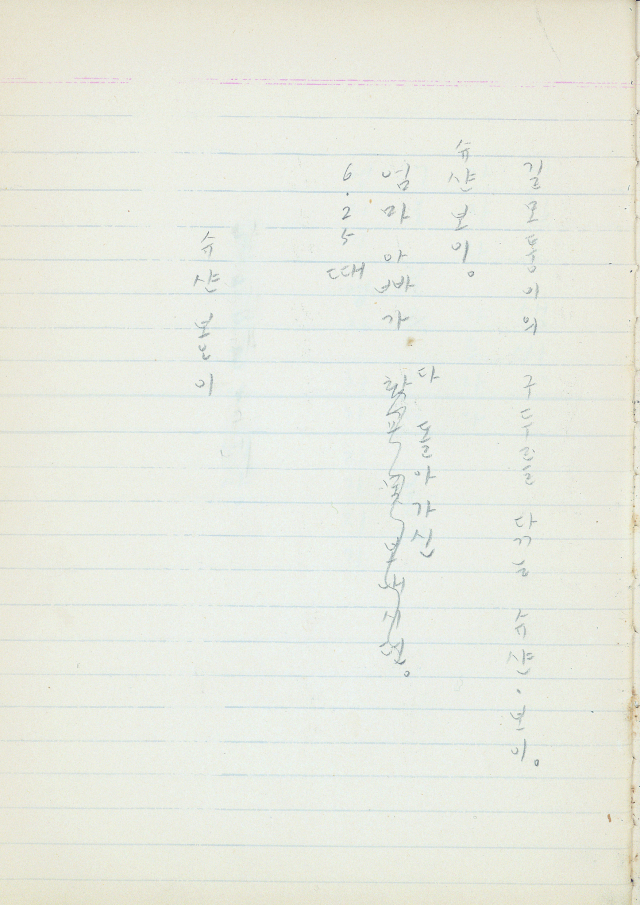 길모통이의 구두를 닦는 슈샨·보이。
슈샨 보이。
다 돌아가신
엄마 아빠가
6.25 때
슈샨 보이